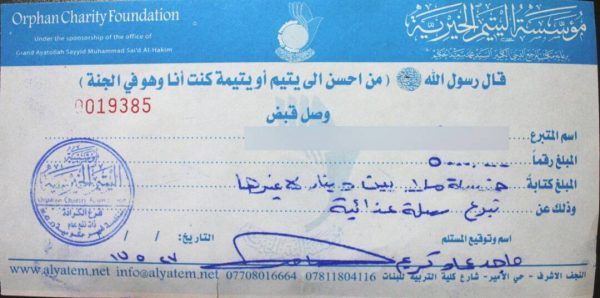 Orphan Charity Foundation
Under the sponsorship of the office of
Grand Ayatollah Sayyid Muhammad Sa'id Al-Hakim
مؤسسة اليتيم الخيرية
قال رسول الله ﷺ ( من احسن الى يتيم أو يتيمة كنت أنا وهو في الجنة )
0019385
وصل قبض
اسم المتبرع
المبلغ رقماً
المبلغ كتابة
دينار لا غيرها
وذلك عن
تبرع سلة غذائية
مؤسسة
اليتيم الخيرية
Orphan Charity Foundation
فرع الكرادة
اسم وتوقيع المستلم
التاريخ: / /
www.alyatem.net info@alyatem.net 07708016664 07811804116 النجف الاشرف - حي الأمير - شارع كلية التربية للبنات